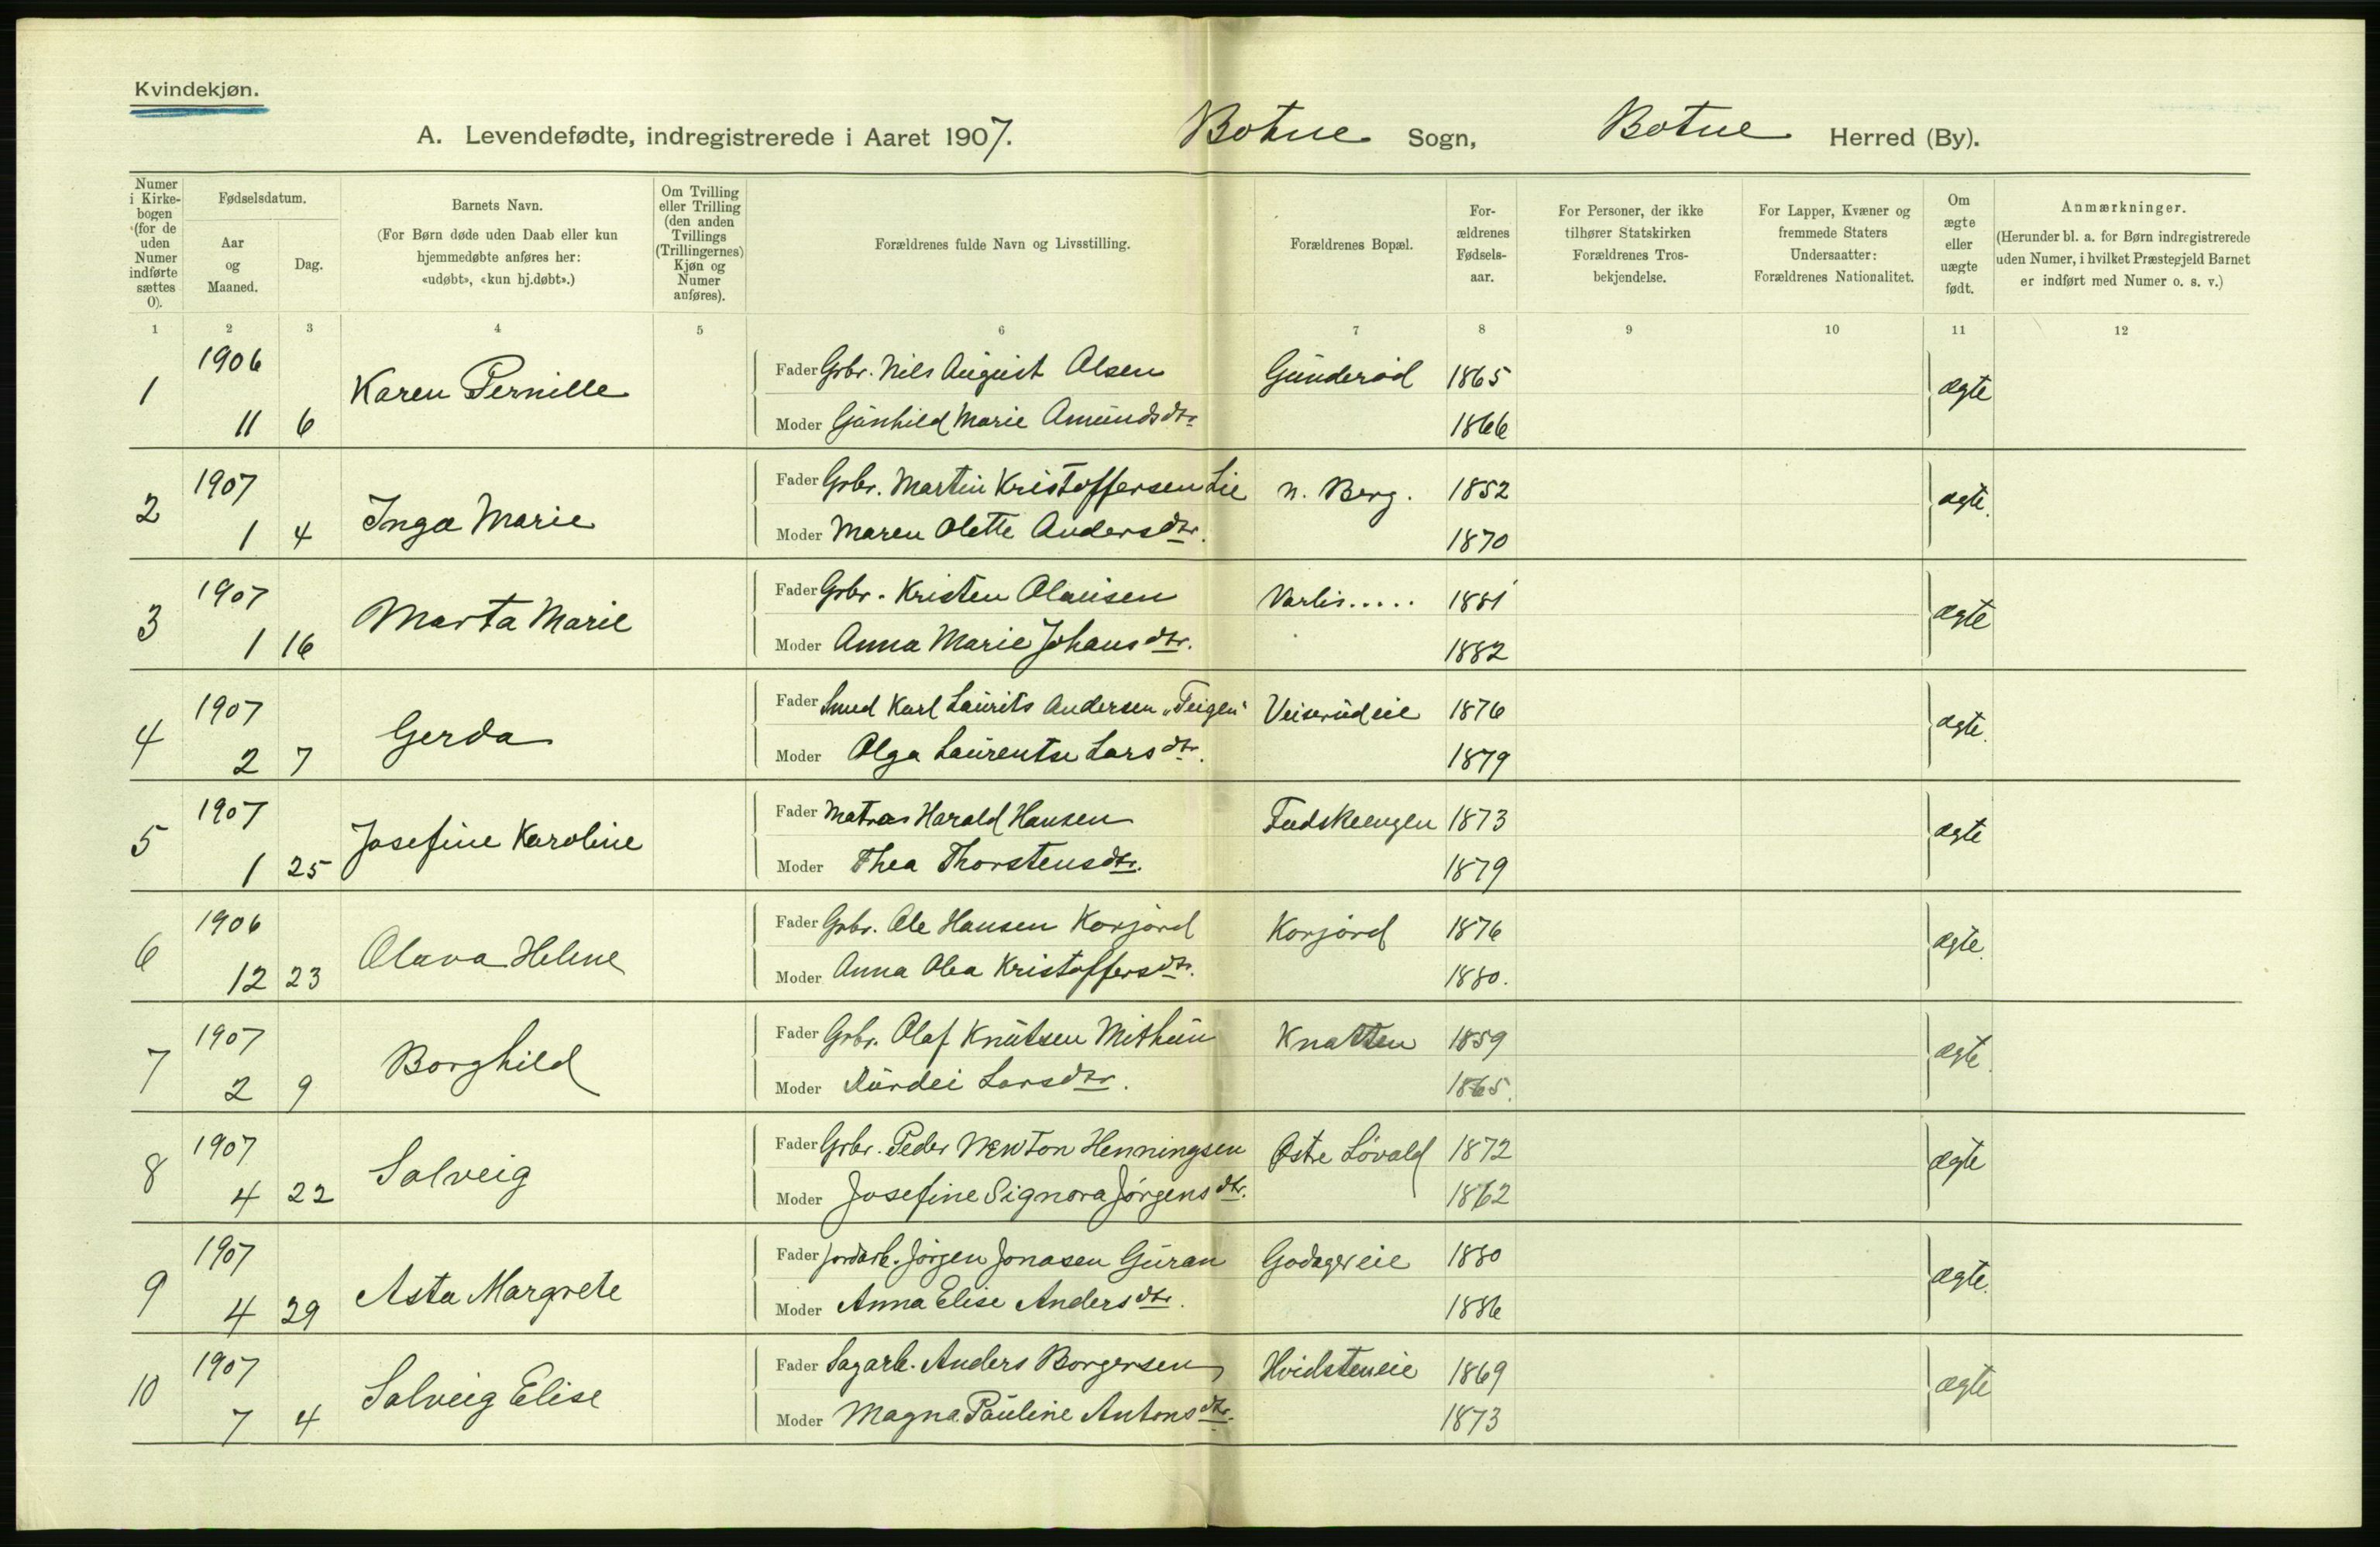 Kvindekjøn.
A. Levendefødte, indregistrerede i Aaret 1907. Botne Sogn, Botne Herred (By).
Numer i Kirkebogen (for de uden Numer indførte sættes 0).
Fødselsdatum.
Aar og Maaned.
Dag.
Barnets Navn.
(For Børn døde uden Daab eller kun hjemmedøbte anføres her: «udøbt», «kun hj.døbt».)
Om Tvilling eller Trilling (den anden Tvillings (Trillingernes) Kjøn og Numer anføres).
Forældrenes fulde Navn og Livsstilling.
Forældrenes Bopæl.
For-ældrenes Fødsels-aar.
For Personer, der ikke tilhører Statskirken Forældrenes Tros-bekjendelse.
For Lapper, Kvæner og fremmede Staters Undersaatter: Forældrenes Nationalitet.
Om ægte eller uægte født.
Anmærkninger.
(Herunder bl. a. for Børn indregistrerede uden Numer, i hvilket Præstegjeld Barnet er indført med Numer o. s. v.)
1 2 3 4 5 6 7 8 9 10 11 12
1 1906 11 6 Karen Pernille Fader Grbr. Nils August Olsen Gunderød 1865 ægte
Moder Gunhild Marie Amundsdtr 1866
2 1907 1 4 Inga Marie Fader Grbr. Martin Kristoffersen Lie n. Berg. 1852 ægte.
Moder Maren Olette Andersdtr. 1870
3 1907 1 16 Marta Marie Fader Grbr. Kristen Olausen Varlis..... 1881 ægte
Moder Anna Marie Johansdtr. 1882
4 1907 2 7 Gerda Fader Smed Karl Laurits Andersen „Teigen" Veiserudeie 1876 ægte.
Moder Olga Laurentse Larsdtr. 1879
5 1907 1 25 Josefine Karoline Fader Matros Harald Hansen 1873 ægte
Moder Thea Thorstensdtr. 1879
6 1906 12 23 Olava Helene Fader Grbr. Ole Hansen Korjord Korjord 1876 ægte.
Moder Anna Olea Kristoffersdtr. 1880.
7 1907 2 9 Borghild Fader Grbr. Olaf Knutsen Mithun Knatten 1859 ægte.
Moder Larsdtr. 1865.
8 1907 4 22 Solveig Fader Grbr. Peder Newton Henningsen Østre Løvald 1872 ægte
Moder Josefine Signora Jørgensdtr. 1862
9 1907 4 29 Asta Margrete Fader Jordarb. Jørgen Jonasen Guran Godagereie 1880 ægte.
Moder Anna Elise Andersdtr. 1886
10 1907 7 4 Solveig Elise Fader Sagarb. Anders Borgersen Hvidsteneie 1869 ægte
Moder Magna Pauline Antonsdtr. 1873